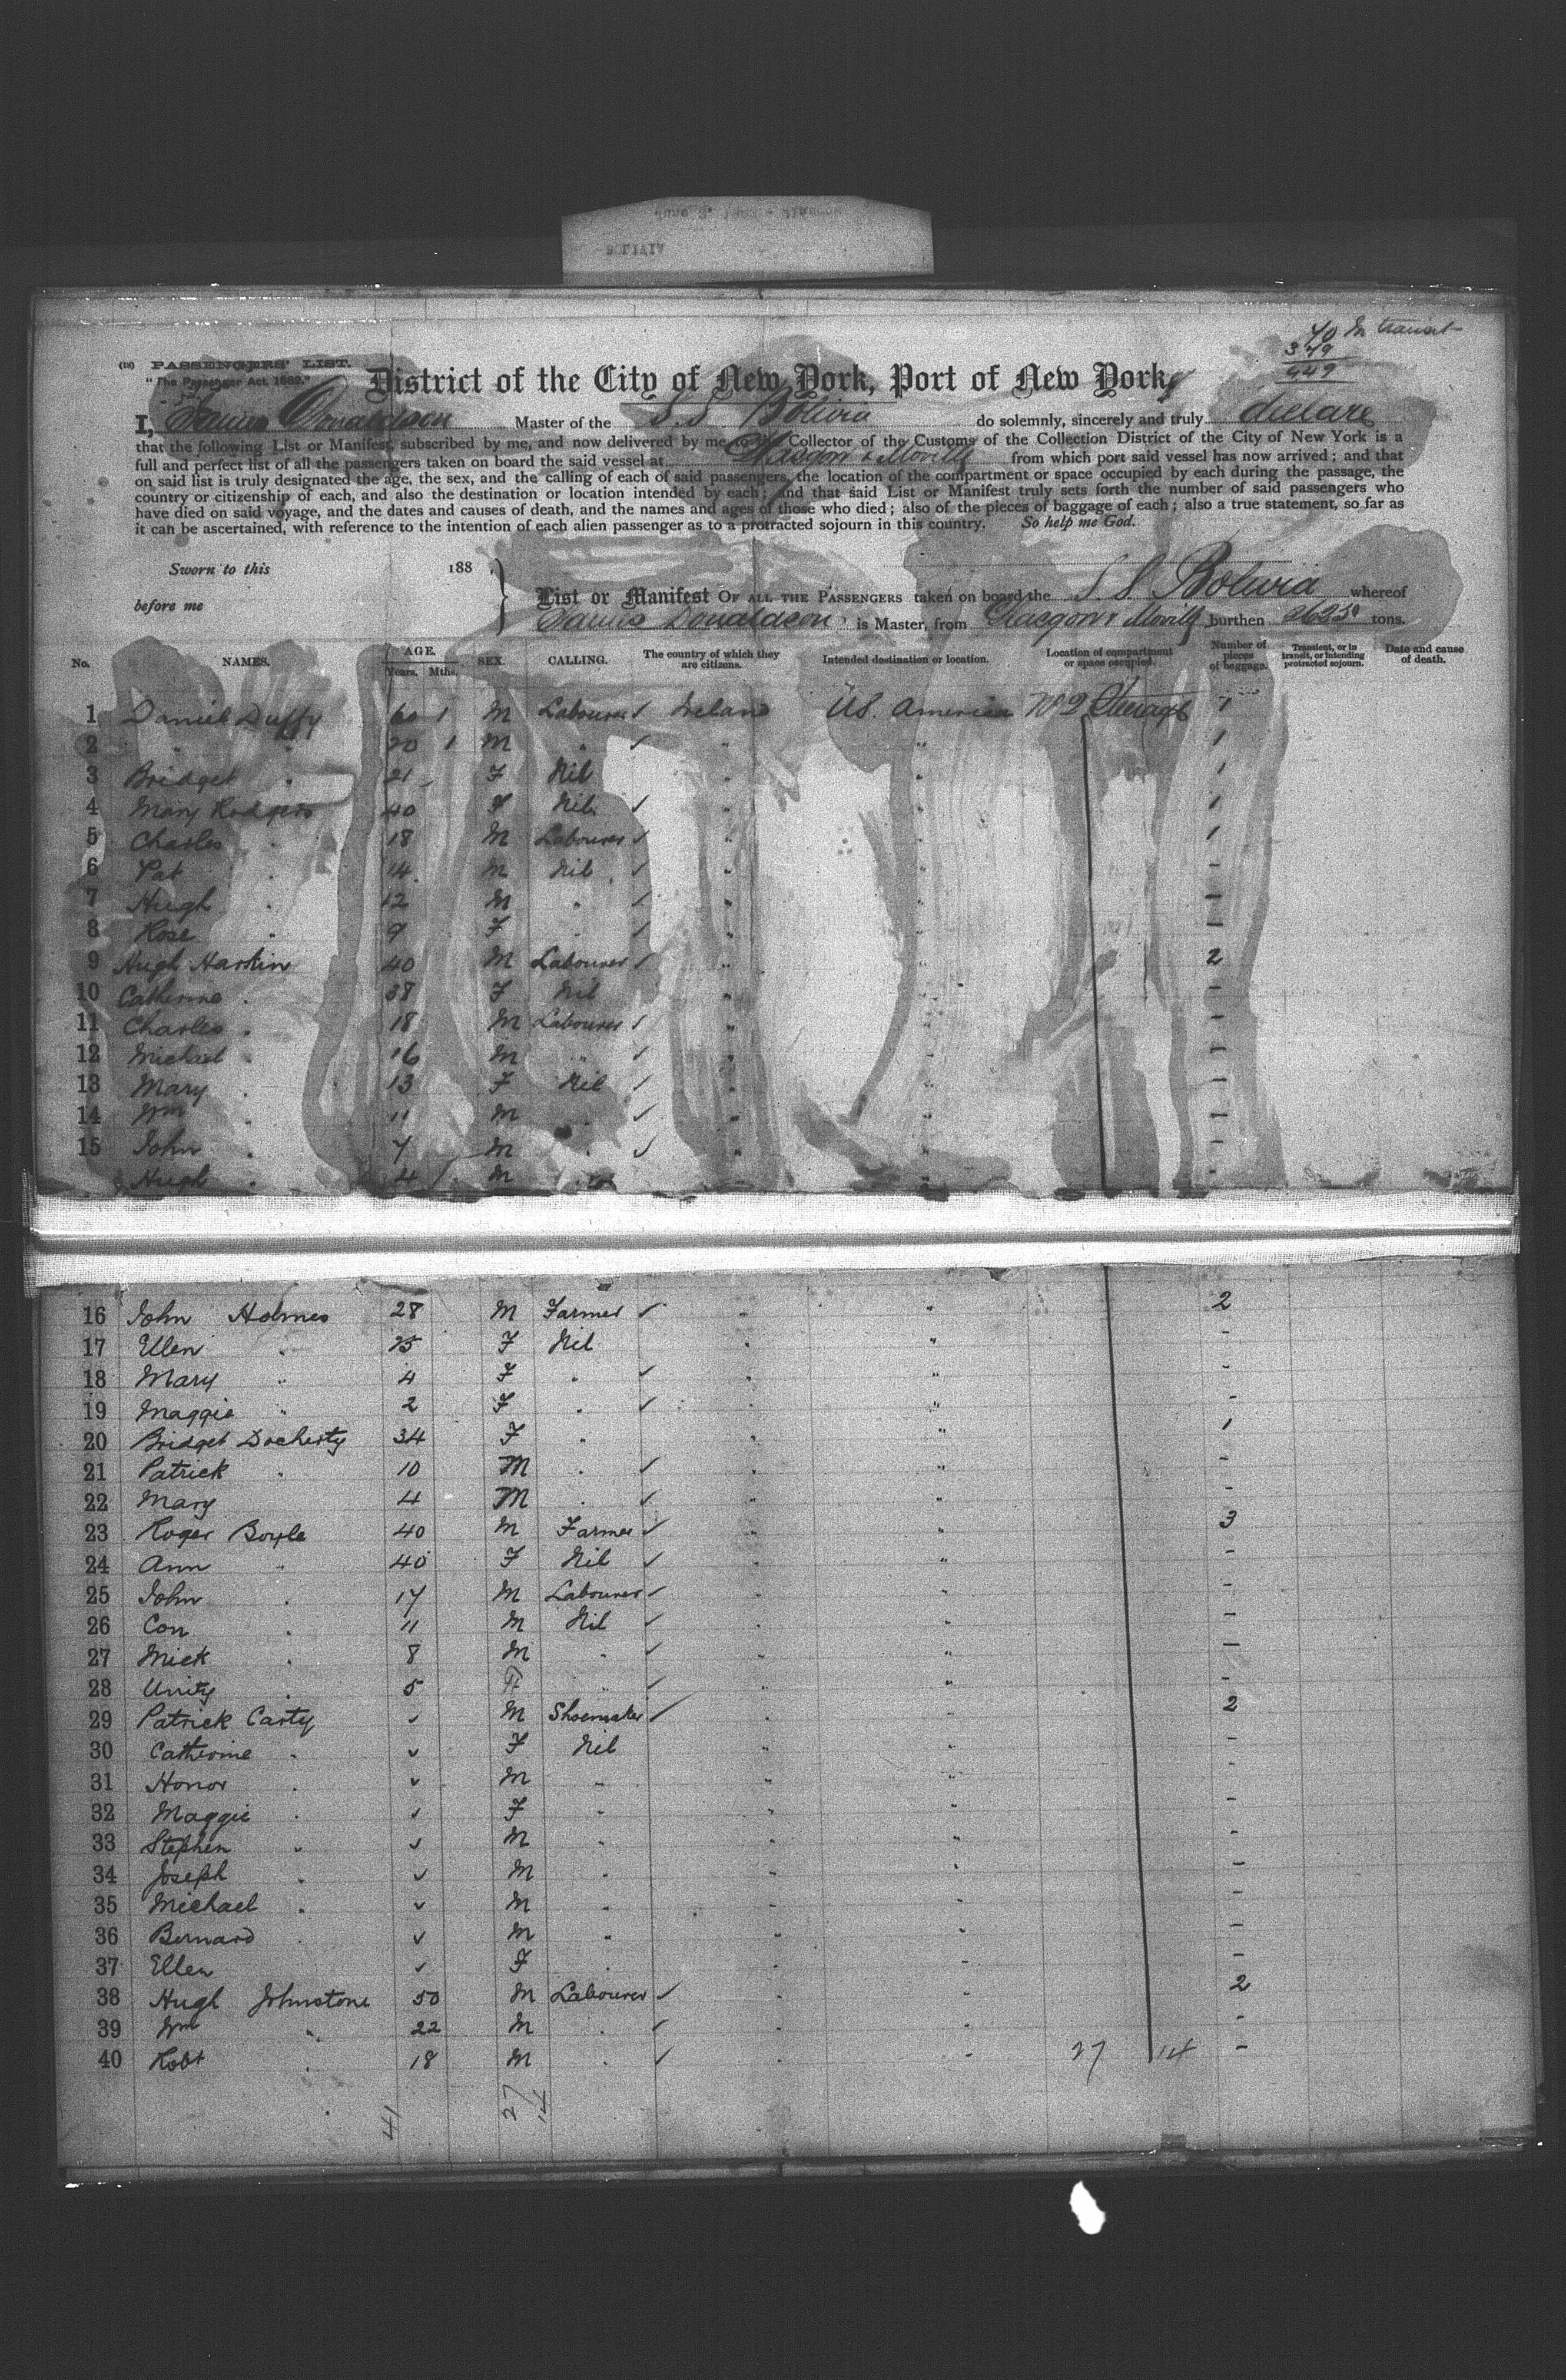 40 In transit
349
449
(18) PASSENGERS' LIST.
"The Passenger Act, 1882."
District of the City of New York, Port of New York,
I, James Donaldson Master of the S.S Bolivia do solemnly, sincerely and truly declare
that the following List or Manifest, subscribed by me, and now delivered by me to the Collector of the Customs of the Collection District of the City of New York is a
full and perfect list of all the passengers taken on board the said vessel at Glasgow & Moville from which port said vessel has now arrived; and that
on said list is truly designated the age, the sex, and the calling of each of said passengers, the location of the compartment or space occupied by each during the passage, the
country or citizenship of each, and also the destination or location intended by each; and that said List or Manifest truly sets forth the number of said passengers who
have died on said voyage, and the dates and causes of death, and the names and ages of those who died; also of the pieces of baggage of each; also a true statement, so far as
it can be ascertained, with reference to the intention of each alien passenger as to a protracted sojourn in this country. So help me God.
Sworn to this 188
before me
List or Manifest OF ALL THE PASSENGERS taken on board the S S Bolivia whereof
James Donaldson is Master, from Glasgow & Moville burthen tons.
No. NAMES. AGE. Years. Mths. SEX. CALLING. The country of which they are citizens. Intended destination or location. Location of compartment or space occupied. Number of pieces of baggage. Transient, or in transit, or intending protracted sojourn. Date and cause of death.
1 Daniel Duffy 60 1 M Labourer ✓ Ireland US. America No 2 Steerage 1
2 " " 20 1 M " ✓ " " 1
3 Bridget " 21 F Nil " " 1
4 Mary Rodgers 40 F Nil ✓ " " 1
5 Charles " 18 M Labourer ✓ " " 1
6 Pat " 14 M Nil ✓ " " -
7 Hugh " 12 M " ✓ " " -
8 Rose " 9 F " ✓ " " -
9 Hugh Harkin 40 M Labourer ✓ " " 2
10 Catherine " 38 F Nil " " -
11 Charles " 18 M Labourer ✓ " " -
12 Michael " 16 M " ✓ " " -
13 Mary " 13 F Nil ✓ " " -
14 Wm " 11 M " ✓ " " -
15 John " 7 M " ✓ " " -
Hugh " 4 M " " " -
16 John Holmes 28 M Farmer ✓ " " 2
17 Ellen " 25 F Nil " " -
18 Mary " 4 F " ✓ " " -
19 Maggie " 2 F " ✓ " " -
20 Bridget Docherty 34 F " " " 1
21 Patrick " 10 M " ✓ " " -
22 Mary 4 M " ✓ " " -
23 Roger Boyle 40 M Farmer ✓ " " 3
24 Ann " 40 F Nil ✓ " " -
25 John " 17 M Labourer ✓ " " -
26 Con " 11 M Nil ✓ " " -
27 Mick " 8 M " ✓ " " -
28 Unity " 5 F " ✓ " " -
29 Patrick Carty ✓ M Shoemaker ✓ " " 2
30 Catherine " ✓ F Nil " " -
31 Honor " ✓ M " " " -
32 Maggie " ✓ F " " " -
33 Stephen " ✓ M " " " -
34 Joseph " ✓ M " " " -
35 Michael " ✓ M " " " -
36 Bernard " ✓ M " " " -
37 Ellen ✓ F " " " -
38 Hugh Johnstone 50 M Labourer ✓ " " 2
39 Wm " 22 M " ✓ " " -
40 Robt " 18 M " ✓ " " 27 14 -
41 27 14